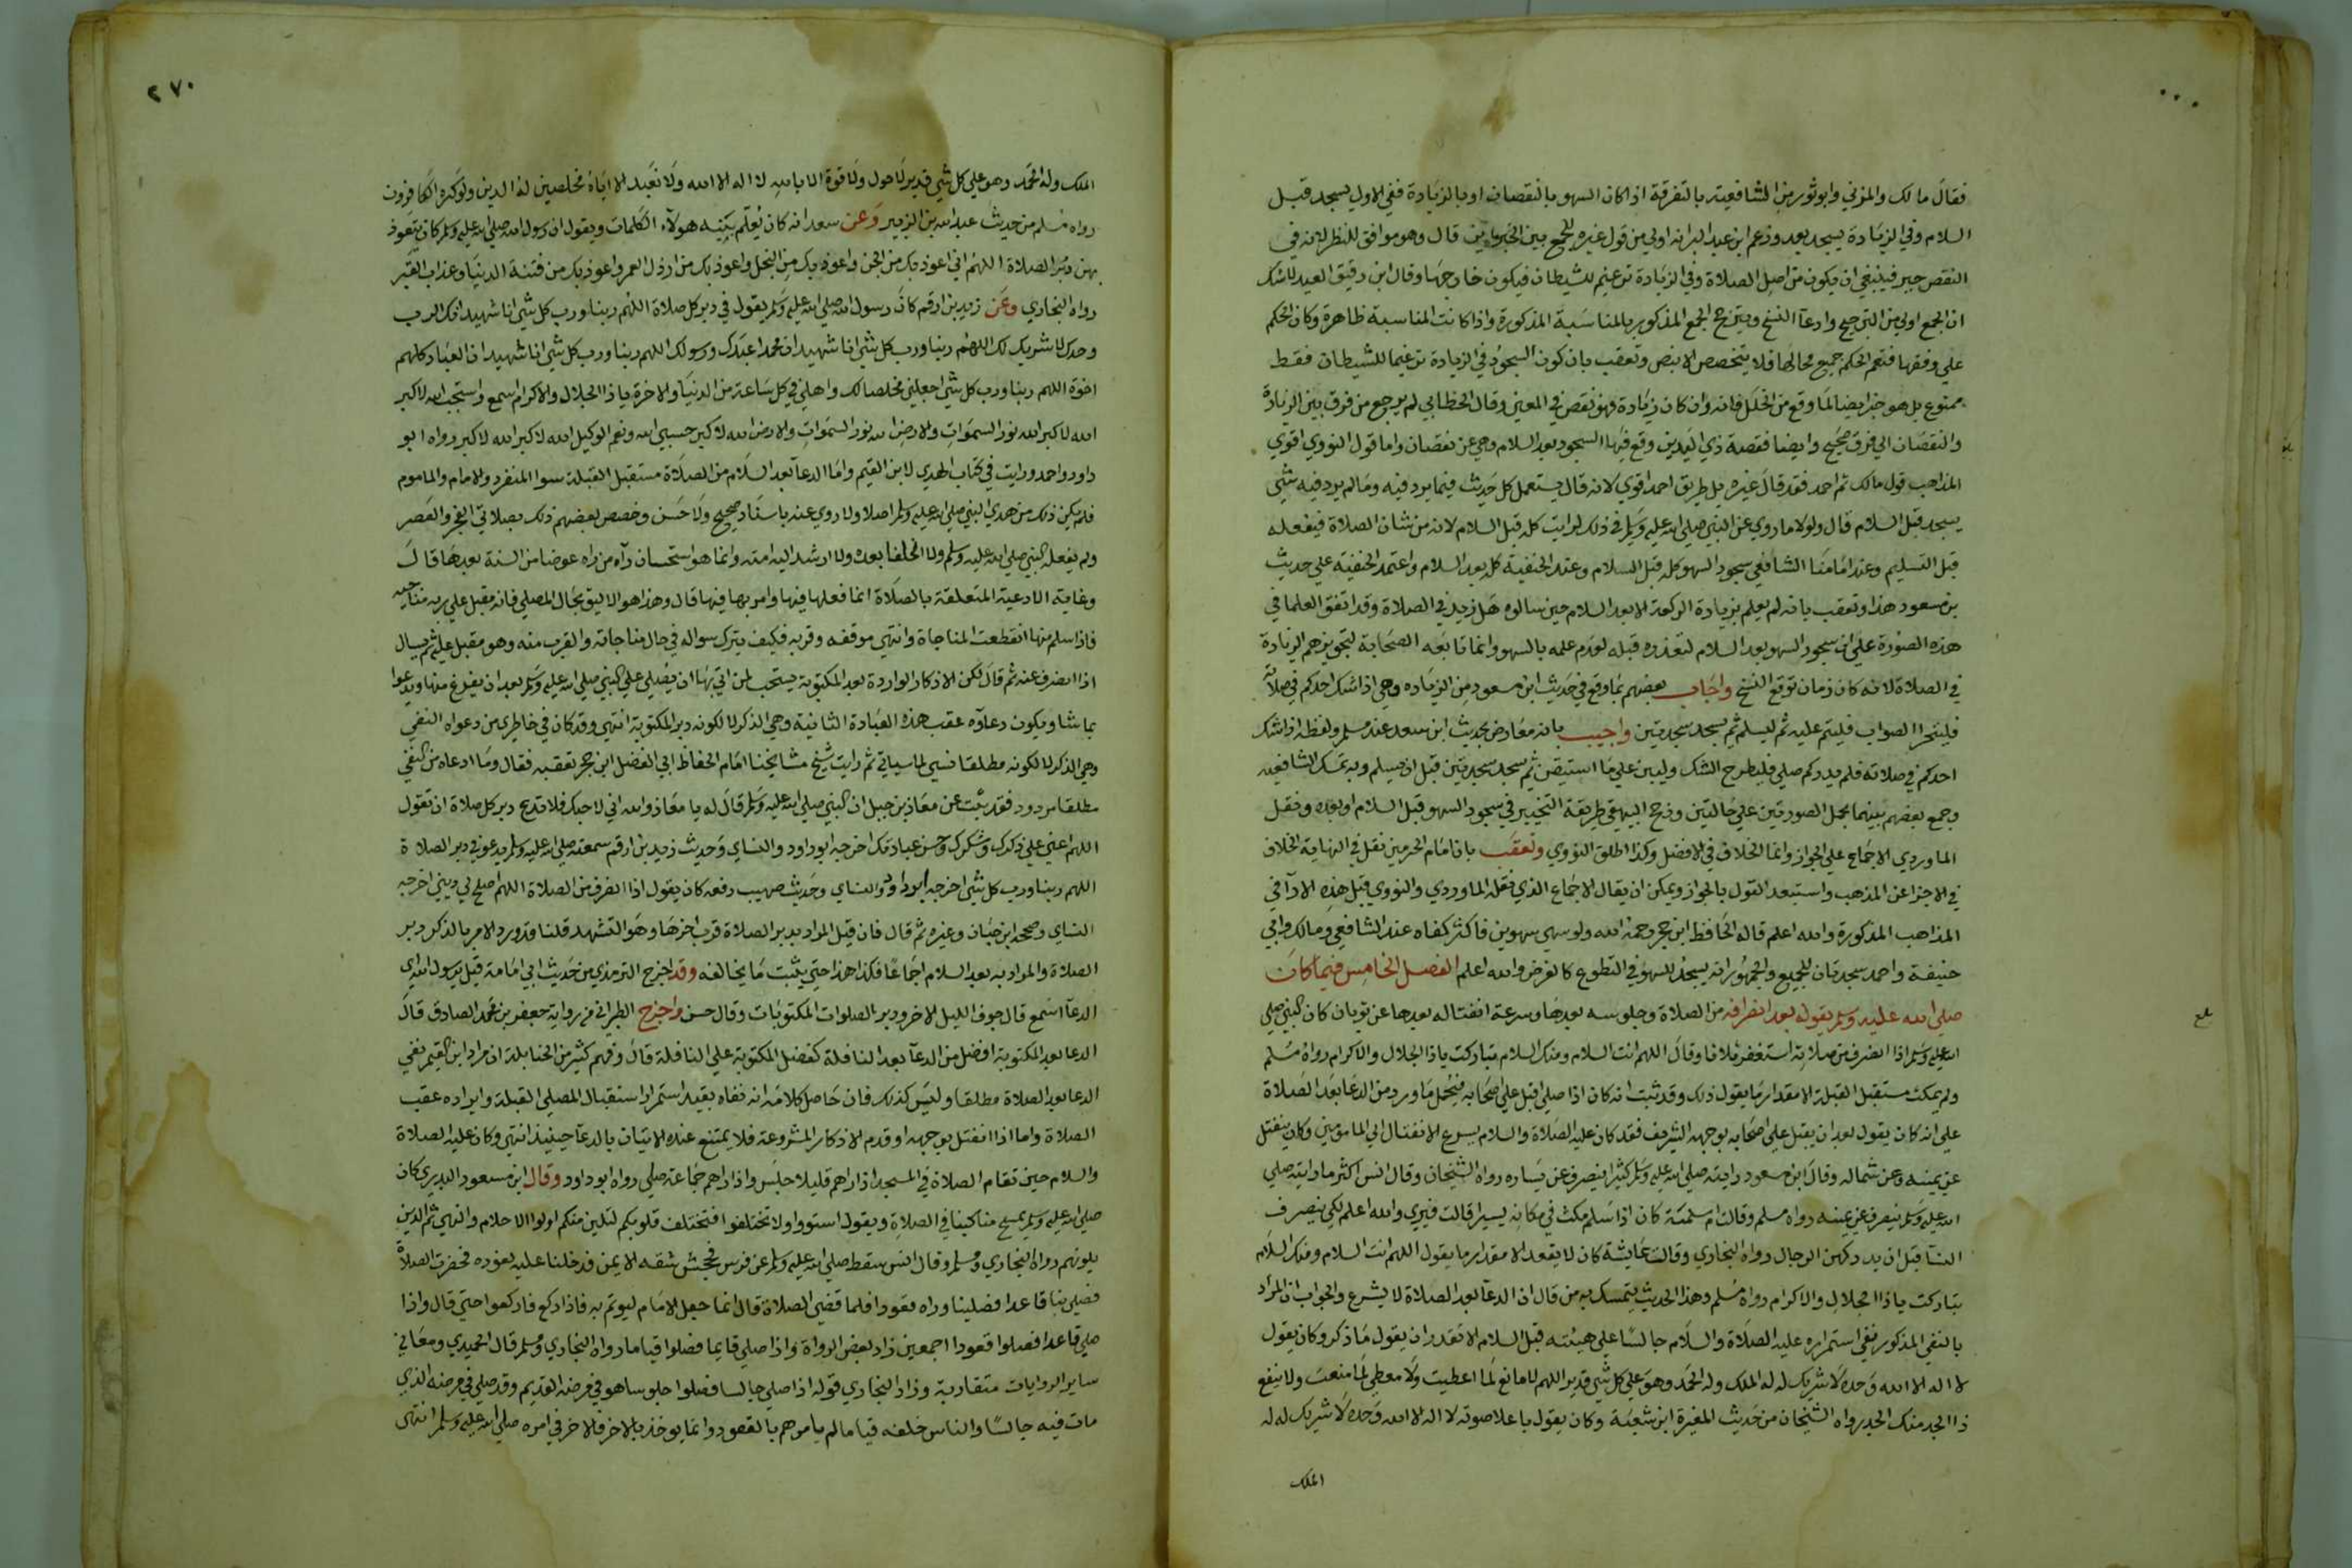 فقال مالك والمزني وابو ثور من الشافعية بالتفرقة اذا كان السهو بالنقصان او بالزيادة ففي الاول يسجد قبل
السلام وفي الزيادة يسجد بعد وزعم ابن عبد البر انه اولي من قول غيره للجمع بين الخبرين قال وهو موافق للنظر لانه في
النقص جبر فينبغي ان يكون من اصل الصلاة وفي الزيادة ترغيم للشيطان فيكون خارجها وقال ابن دقيق العيد لا شك
ان الجمع اولي من الترجيح وادعآ النسخ ويترجح الجمع المذكور بالمناسبة المذكورة واذا كانت المناسبة ظاهرة وكان الحكم
علي وفقها فتعم الحكم جميع محالها فلا يتخصص الا بنص وتعقب بان كون السجود في الزيادة ترغيما للشيطان فقط
ممنوع بل هو جبر ايضا لما وقع من الخلل فانه وان كان زيادة فهو نقص في المعني وقال الخطابي لم يرجع من فرق بين الزيادة
والنقصان الي فرق صحيح وايضا فقصة ذي اليدين وقع فيها السجود بعد السلام وهي عن نقصان واما قول النووي اقوي
المذاهب قول مالك ثم احمد فقد قال غيره بل طريق احمد اقوي لانه قال يستعمل كل حديث فيما يرد فيه وما لم يرد فيه شي
يسجد قبل السلام قال ولولا ما روي عن النبي صلي الله عليه وسلم في ذلك لرايت كله قبل السلام لانه من شان الصلاة فيفعله
قبل التسليم وعند امامنا الشافعي سجود السهو كله قبل السلام وعند الحنفية كله بعد السلام واعتمد الحنفية علي حديث
بن مسعود هذا وتعقب بانه لم يعلم بزيادة الركعة الا بعد السلام حين سالوه هل زيد في الصلاة وقد اتفق العلما في
هذه الصورة علي ان سجود السهو بعد السلام لتعذره قبله لعدم علمه بالسهو وانما تابعه الصحابة لتجويزهم الزيادة
في الصلاة لانه كان زمان توقع النسخ واجاب بعضهم بما وقع في حديث ابن مسعود من الزيادة وهي اذا شك احدكم في صلاته
فليتحر الصواب فليتم عليه ثم ليسلم ثم يسجد سجدتين واجيب بانه معارض بحديث ابن سعد عند مسلم ولفظه اذا شك
احدكم في صلاته فلم يدر كم صلي فليطرح الشك وليبن علي ما استيقن ثم يسجد سجدتين قبل ان يسلم وبه تمسك الشافعيه
وجمع بعضهم بينهما بحمل الصورتين علي حالتين ورجح البيهقي طريقة التخيير في سجود السهو قبل السلام او بعده ونقل
الماوردي الاجماع علي الجواز وانما الخلاف في الافضل وكذا اطلق النووي وتعقب بان امام الحرمين نقل في النهاية الخلاف
في الاجزا عن المذهب واستبعد القول بالجواز ويمكن ان يقال الاجماع الذي نقله الماوردي والنووي قبل هذه الآرا في
المذاهب المذكورة والله اعلم قاله الحافظ ابن حجر رحمه الله ولو سهي سهوين فاكثر كفاه عند الشافعي ومالك وابي
حنيفة واحمد سجدتان للجميع والجمهور انه يسجد للسهو في التطوع كالفرض والله اعلم الفصل الخامس فيما كان
صلي الله عليه وسلم يقوله بعد انصرافه من الصلاة وجلوسه بعدها وسرعة انفتاله بعدها عن ثوبان كان النبي صلي
الله عليه وسلم اذا انصرف من صلاته استغفر ثلاثا وقال اللهم انت السلام ومنك السلام تباركت يا ذا الجلال والاكرام رواه مسلم
ولم يمكث مستقبل القبلة الا مقدار ما يقول ذلك وقد ثبت انه كان اذا صلي اقبل علي اصحابه فيحمل ما ورد من الدعا بعد الصلاة
علي انه كان يقول بعد ان يقبل علي اصحابه بوجهه الشريف فقد كان عليه الصلاة والسلام يسرع الانفتال الي المامومين وكان ينفتل
عن يمينه وعن شماله وقال ابن مسعود رايته صلي الله عليه وسلم كثيرا ينصرف عن يساره رواه الشيخان وقال انس اكثر ما رايته صلي
الله عليه وسلم ينصرف عن يمينه رواه مسلم وقالت ام سلمة كان اذا سلم مكث في مكانه يسيرا قالت فنري والله اعلم لكي ينصرف
النسآ قبل ان يدركهن الرجال رواه البخاري وقالت عايشة كان لا يقعد الا مقدار ما يقول اللهم انت السلام ومنك السلام
تباركت يا ذا الجلال والاكرام رواه مسلم وهذا الحديث يتمسك به من قال ان الدعآ بعد الصلاة لا يشرع والجواب ان المراد
بالنفي المذكور نفي استمراره عليه الصلاة والسلام جالسا علي هيئته قبل السلام الا بقدر ان يقول ما ذكر وكان يقول
لا اله الا الله وحده لا شريك له له الملك وله الحمد وهو علي كل شي قدير اللهم لا مانع لما اعطيت ولا معطي لما منعت ولا ينفع
ذا الجد منك الجد رواه الشيخان من حديث المغيرة ابن شعبة وكان يقول باعلا صوته لا اله الا الله وحده لا شريك له له
الملك
٢٧٠
الملك وله الحمد وهو علي كل شي قدير لا حول ولا قوة الا بالله لا اله الا الله ولا نعبد الا اياه مخلصين له الدين ولو كره الكافرون
رواه مسلم من حديث عبد الله بن الزبير وعن سعد انه كان يُعلّم بنيه هولآء الكلمات ويقول ان رسول الله صلي الله عليه وسلم كان يتعوذ
بهن دبر الصلاة اللهم اني اعوذ بك من الجبن واعوذ بك من البخل واعوذ بك من ارذل العمر واعوذ بك من فتنة الدنيا وعذاب القبر
رواه البخاري وعن زيد بن ارقم كان رسول الله صلي الله عليه وسلم يقول في دبر كل صلاة اللهم ربنا ورب كل شي انا شهيد انك الرب
وحدك لا شريك لك اللهم ربنا ورب كل شي انا شهيد ان محمدا عبدك ورسولك اللهم ربنا ورب كل شي انا شهيد ان العباد كلهم
اخوة اللهم ربنا ورب كل شي اجعلني مخلصا لك واهلي في كل ساعة من الدنيا والاخرة يا ذا الجلال والاكرام اسمع واستجب الله الاكبر
الله الاكبر الله نور السموات والارض الله نور السموات والارض الله الاكبر حسبي الله ونعم الوكيل الله الاكبر الله الاكبر رواه ابو
داود واحمد ورايت في كتاب الهدي لابن القيم واما الدعآ بعد السلام من الصلاة مستقبل القبلة سوا المنفرد والامام والماموم
فلم يكن ذلك من هدي النبي صلي الله عليه وسلم اصلا ولا روي عنه باسناد صحيح ولا حسن وخصص بعضهم ذلك بصلاتي الفجر والعصر
ولم يفعله النبي صلي الله عليه وسلم ولا الخلفا بعده ولا ارشد اليه امته وانما هو استحسان رآه من راه عوضا من السنة بعدها قال
وغاية الادعية المتعلقة بالصلاة انما فعلها فيها وامر بها فيها قال وهذا هو الاليق بحال المصلي فانه مقبل علي ربه مناجيه
فاذا سلم منها انقطعت المناجاة وانتهي موقفه وقربه فكيف يترك سواله في حال مناجاته والقرب منه وهو مقبل عليه ثم يسال
اذا انصرف عنه ثم قال لكن الاذكار الواردة بعد المكتوبة يستحب لمن اتي بها ان يصلي علي النبي صلي الله عليه وسلم بعد ان يفرغ منها ويدعوا
بما شا ويكون دعاوه عقب هذه العبادة الثانية وهي الذكر لا لكونه دبر المكتوبة انتهي وقد كان في خاطري من دعواه النفي
وهي الذكر لا لكونه مطلقا شي لما سياتي ثم رايت شيخ مشايخنا امام الحفاظ ابي الفضل ابن حجر تعقبه فقال وما ادعاه من النفي
مطلقا مردود فقد ثبت عن معاذ بن جبل ان النبي صلي الله عليه وسلم قال له يا معاذ والله اني لاحبك فلا تدع دبر كل صلاة ان تقول
اللهم اعني علي ذكرك وشكرك وحسن عبادتك اخرجه ابو داود والنساي وحديث زيد بن ارقم سمعته صلي الله عليه وسلم يدعو في دبر الصلاة
اللهم ربنا ورب كل شي اخرجه ابو داود والنساي وحديث صهيب رفعه كان يقول اذا انصرف من الصلاة اللهم اصلح لي ديني اخرجه
النساي وصححه ابن حبان وغيره ثم قال فان قيل المراد بدبر الصلاة قرب اخرها وهو التشهد قلنا قد ورد الامر بالذكر دبر
الصلاة والمراد به بعد السلام اجماعا فكذا هذا حتي يثبت ما يخالفه وقد اخرج الترمذي من حديث ابي امامة قيل يرسول الله اي
الدعآ اسمع قال جوف الليل الاخر ودبر الصلوات المكتوبات وقال حسن واخرج الطبراني من رواية جعفر بن محمد الصادق قال
الدعا بعد المكتوبة افضل من الدعآ بعد النافلة كفضل المكتوبة علي النافلة قال وفهم كثير من الحنابلة ان مراد ابن القيم نفي
الدعا بعد الصلاة مطلقا وليس كذلك فان حاصل كلامه انه نفاه بقيد استمرار استقبال المصلي القبلة وايراده عقب
الصلاة واما اذا انفتل بوجهه او قدم الاذكار المشروعة فلا يمتنع عنده الاتيان بالدعآ حينيذ انتهي وكان عليه الصلاة
والسلام حين تقام الصلاة في المسجد اذا راهم قليلا جلس واذا راهم جماعة صلي رواه ابو داود وقال ابن مسعود البدري كان
صلي الله عليه وسلم يمسح مناكبنا في الصلاة ويقول استووا ولا تختلفوا فتختلف قلوبكم لتلين منكم اولوا الاحلام والنهي ثم الذين
يلونهم رواه البخاري ومسلم وقال انس سقط صلي الله عليه وسلم عن فرس فجحش شقه الايمن فدخلنا عليه نعوده فحضرت الصلاة
فصلي بنا قاعدا فصلينا وراه قعودا فلما قضي الصلاة قال انما جعل الامام ليوتم به فاذا ركع فاركعوا حتي قال واذا
صلي قاعدا فصلوا قعودا اجمعين زاد بعض الرواة واذا صلي قايما فصلوا قياما رواه البخاري ومسلم قال الحميدي ومعاني
ساير الروايات متقاربة وزاد البخاري قوله اذا صلي جالسا فصلوا جلوسا هو في مرضه القديم وقد صلي في مرضه الذي
مات فيه جالسا والناس خلفه قياما لم يامرهم بالقعود وانما يوخذ بالاخر فالاخر في امره صلي الله عليه وسلم انتهي